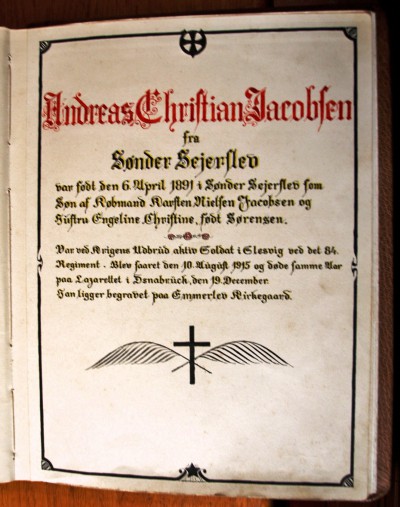 Andreas Christian Jacobsen
fra
Sønder Sejerslev
var født den 6. April 1891 i Sønder Sejerslev som
Søn af Købmand Karsten Nielsen Jacobsen og
Hustru Engeline Christine, født Sørensen.
Var ved Krigens Udbrud aktiv Soldat i Slesvig ved det 84.
Regiment. Blev saaret den 10. August 1915 og døde samme Aar
paa Lazarettet i Osnabrück, den 19. December.
Han ligger begravet paa Emmerlev Kirkegaard.